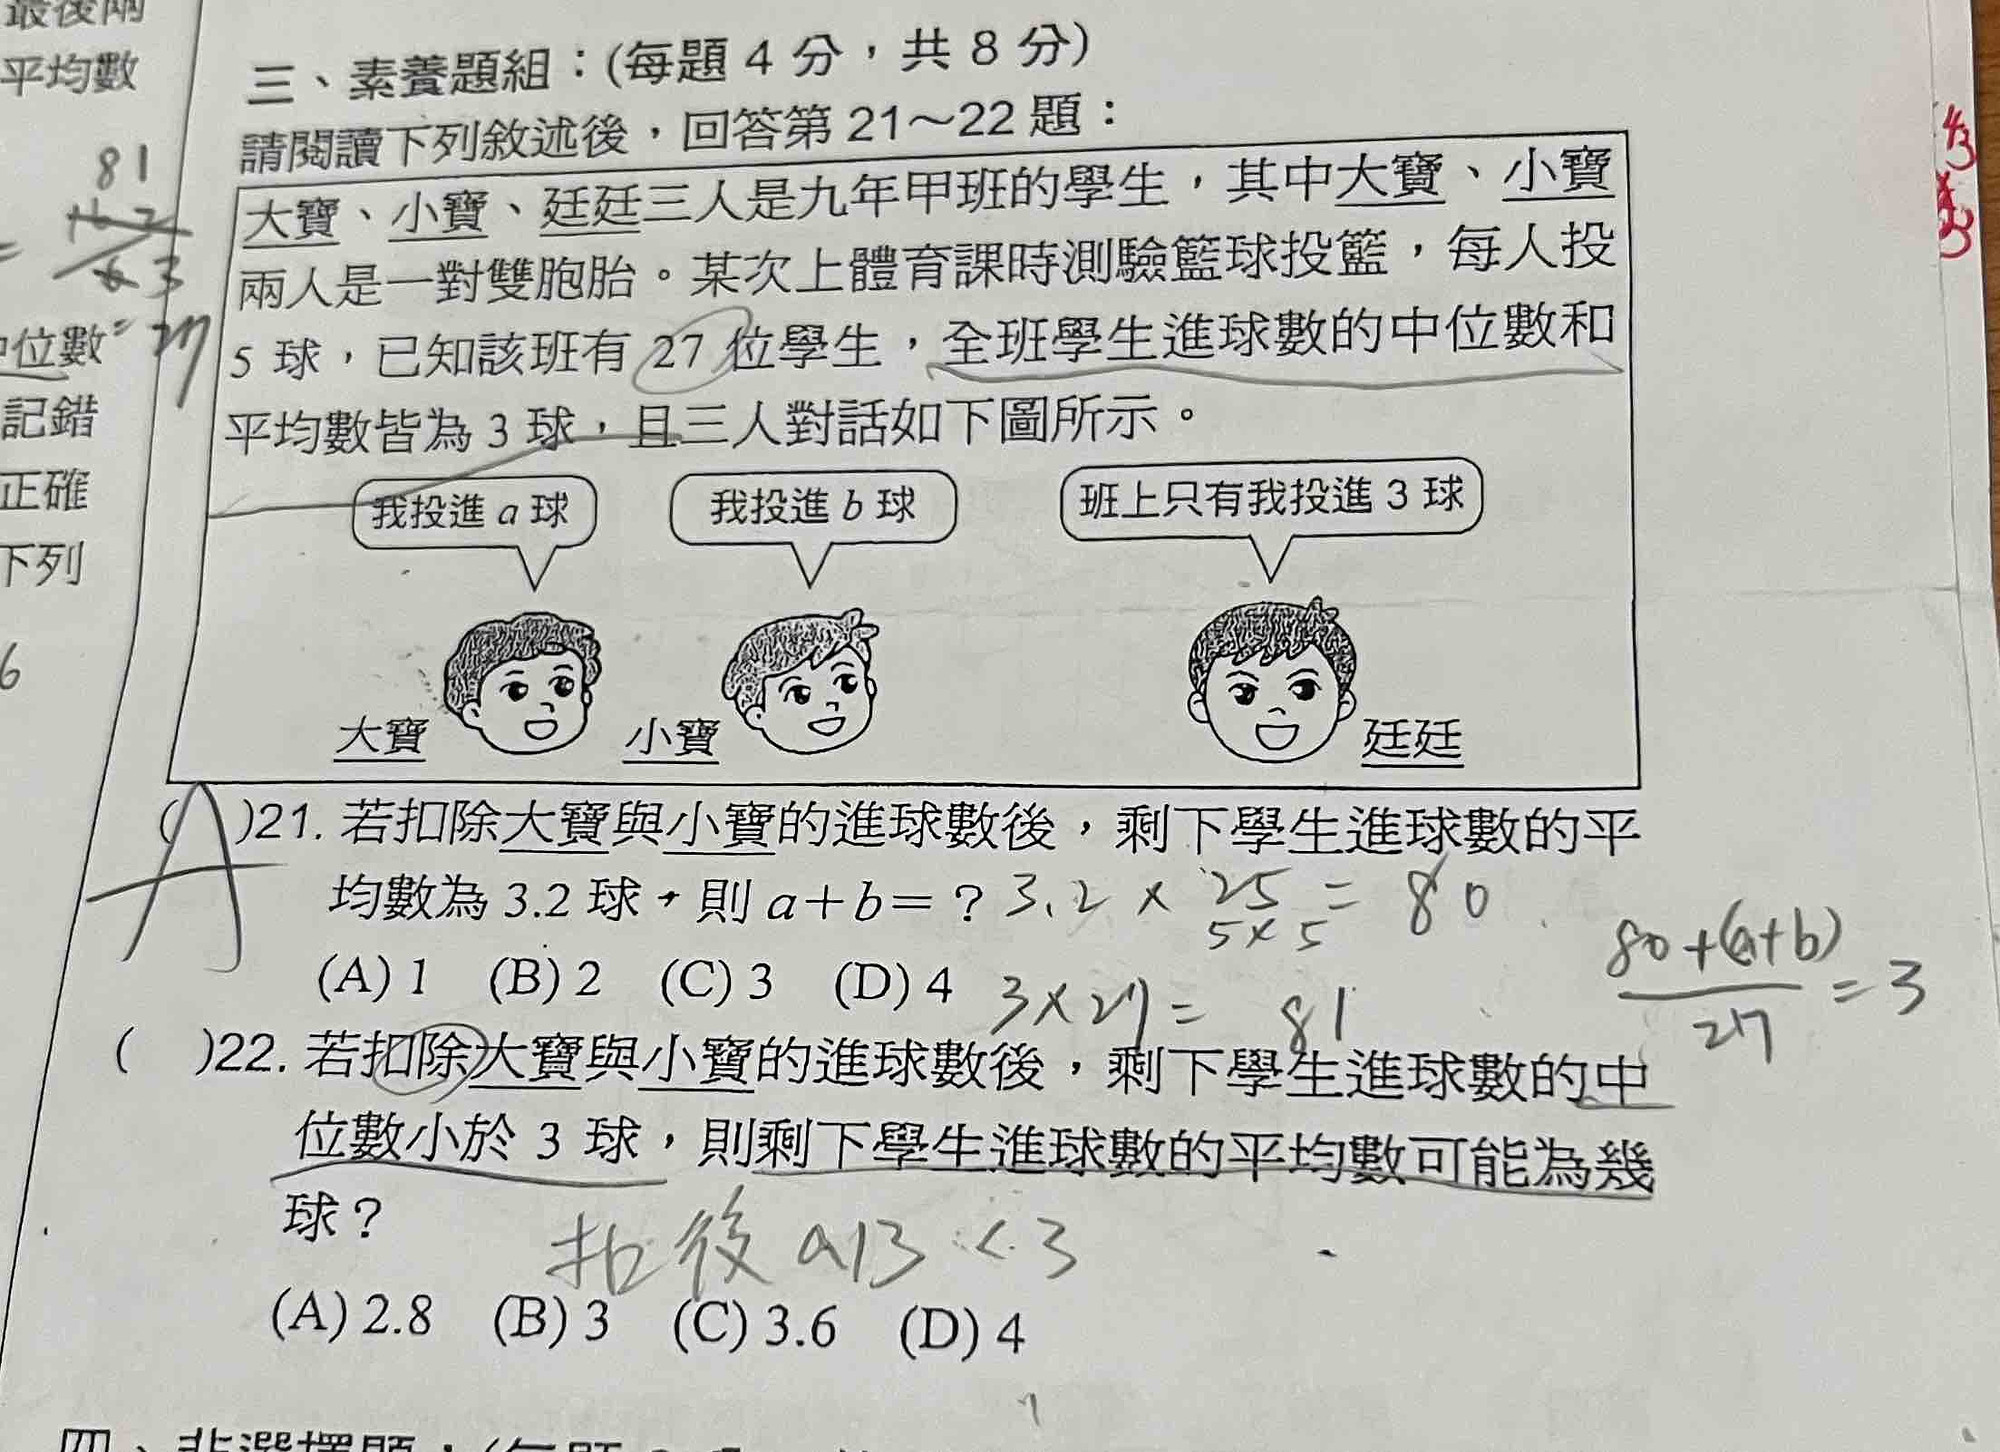 最後兩
平均數
81
= 3
= 27
中位數
記錯
正確
下列
6
三、素養題組：(每題 4 分，共 8 分)
請閱讀下列敘述後，回答第 21～22 題：
大寶、小寶、廷廷三人是九年甲班的學生，其中大寶、小寶
兩人是一對雙胞胎。某次上體育課時測驗籃球投籃，每人投
5 球，已知該班有 27 位學生，全班學生進球數的中位數和
平均數皆為 3 球，且三人對話如下圖所示。
我投進 a 球
我投進 b 球
班上只有我投進 3 球
大寶
小寶
廷廷
(A)21. 若扣除大寶與小寶的進球數後，剩下學生進球數的平
均數為 3.2 球，則 a+b=？ 3.2 × 25 = 80
5×5
(A) 1 (B) 2 (C) 3 (D) 4 3×27= 81
80+(a+b)
27
=3
( )22. 若扣除大寶與小寶的進球數後，剩下學生進球數的中
位數小於 3 球，則剩下學生進球數的平均數可能為幾
球？
扣後 a13 < 3
(A) 2.8 (B) 3 (C) 3.6 (D) 4
四、非選擇題：(每題